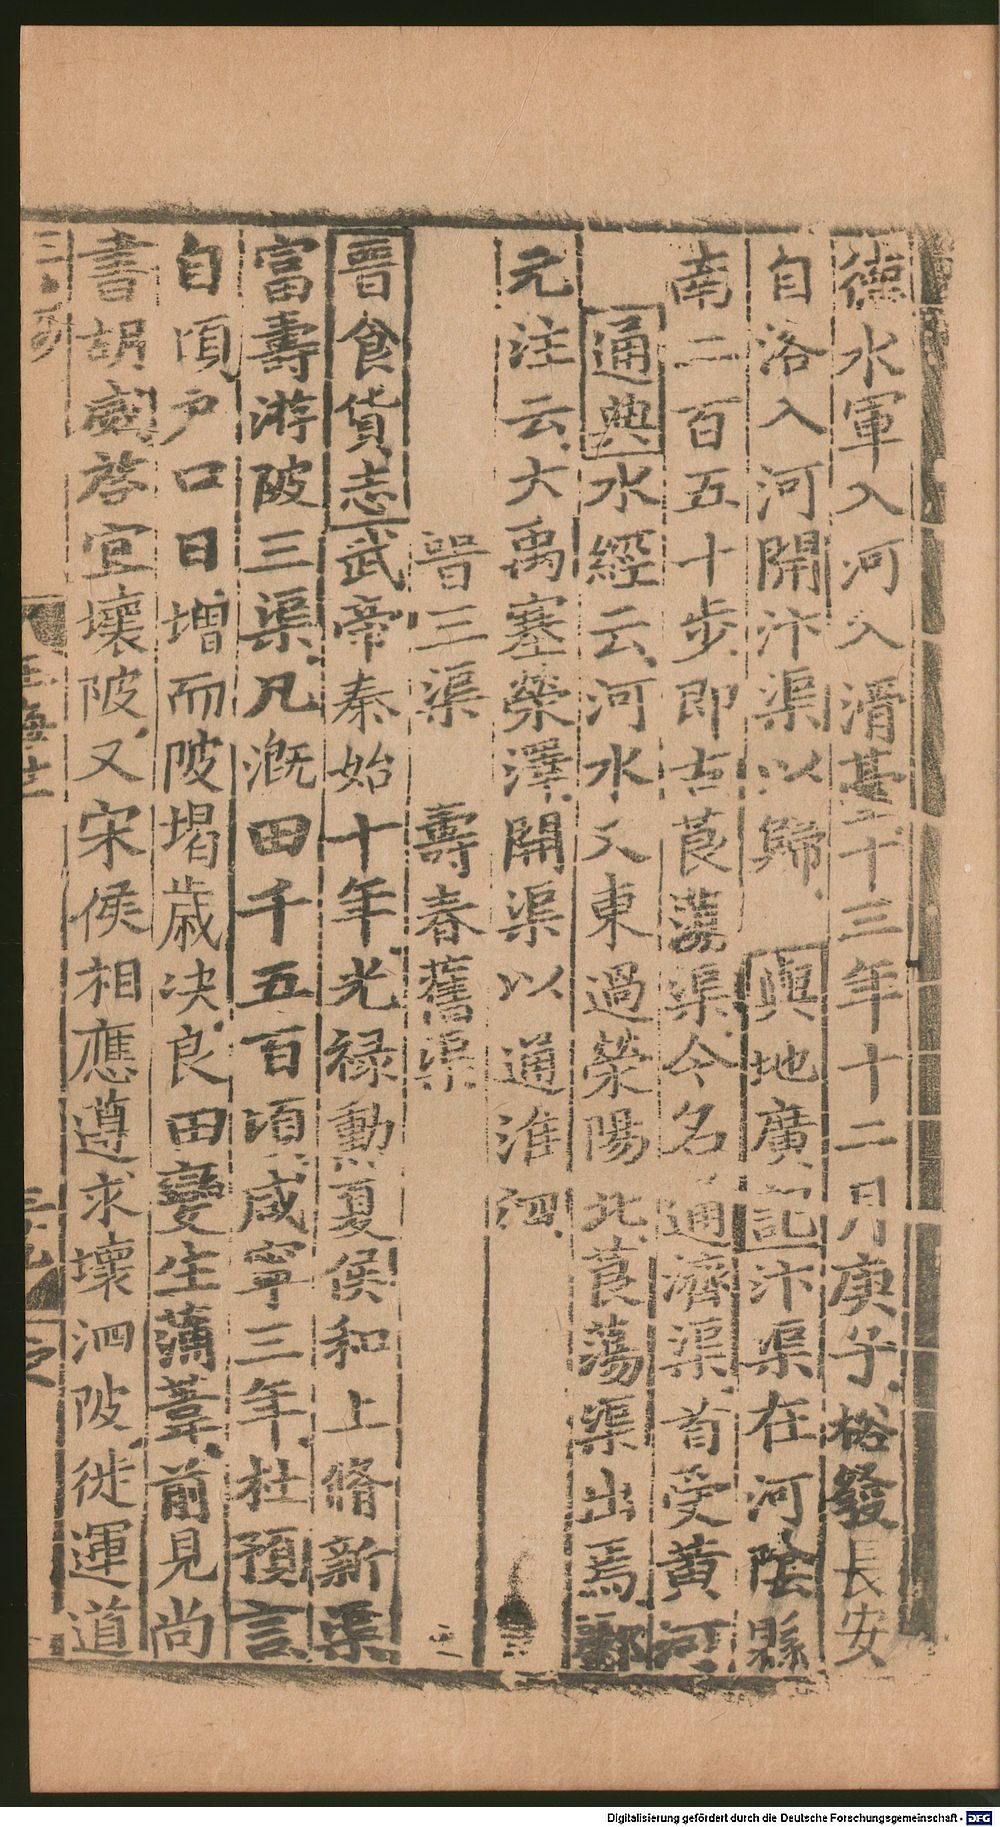 德水軍入河入滑甚十三年十二月庚子裕發長安
自洛入河開汴渠以歸輿地廣記汴渠在河陰縣
南二百五十步即古莨蕩渠今名通濟渠首受黄河
通典水經云河水又東過滎陽北莨蕩渠出焉酈
元注云大禹塞滎澤開渠以通淮泗
晉三渠 壽春舊渠
晉食貨志武帝泰始十年光禄勳夏侯和上脩新渠
富壽游陂三渠凡溉田千五百頃咸寧三年杜預言
自頃户口日增而陂堨歲決良田變生蒲葦前見尚
書胡威啓宜壞陂又宋侯相應遵求壞泗陂徙運道
Digitalisierung gefördert durch die Deutsche Forschungsgemeinschaft - DFG